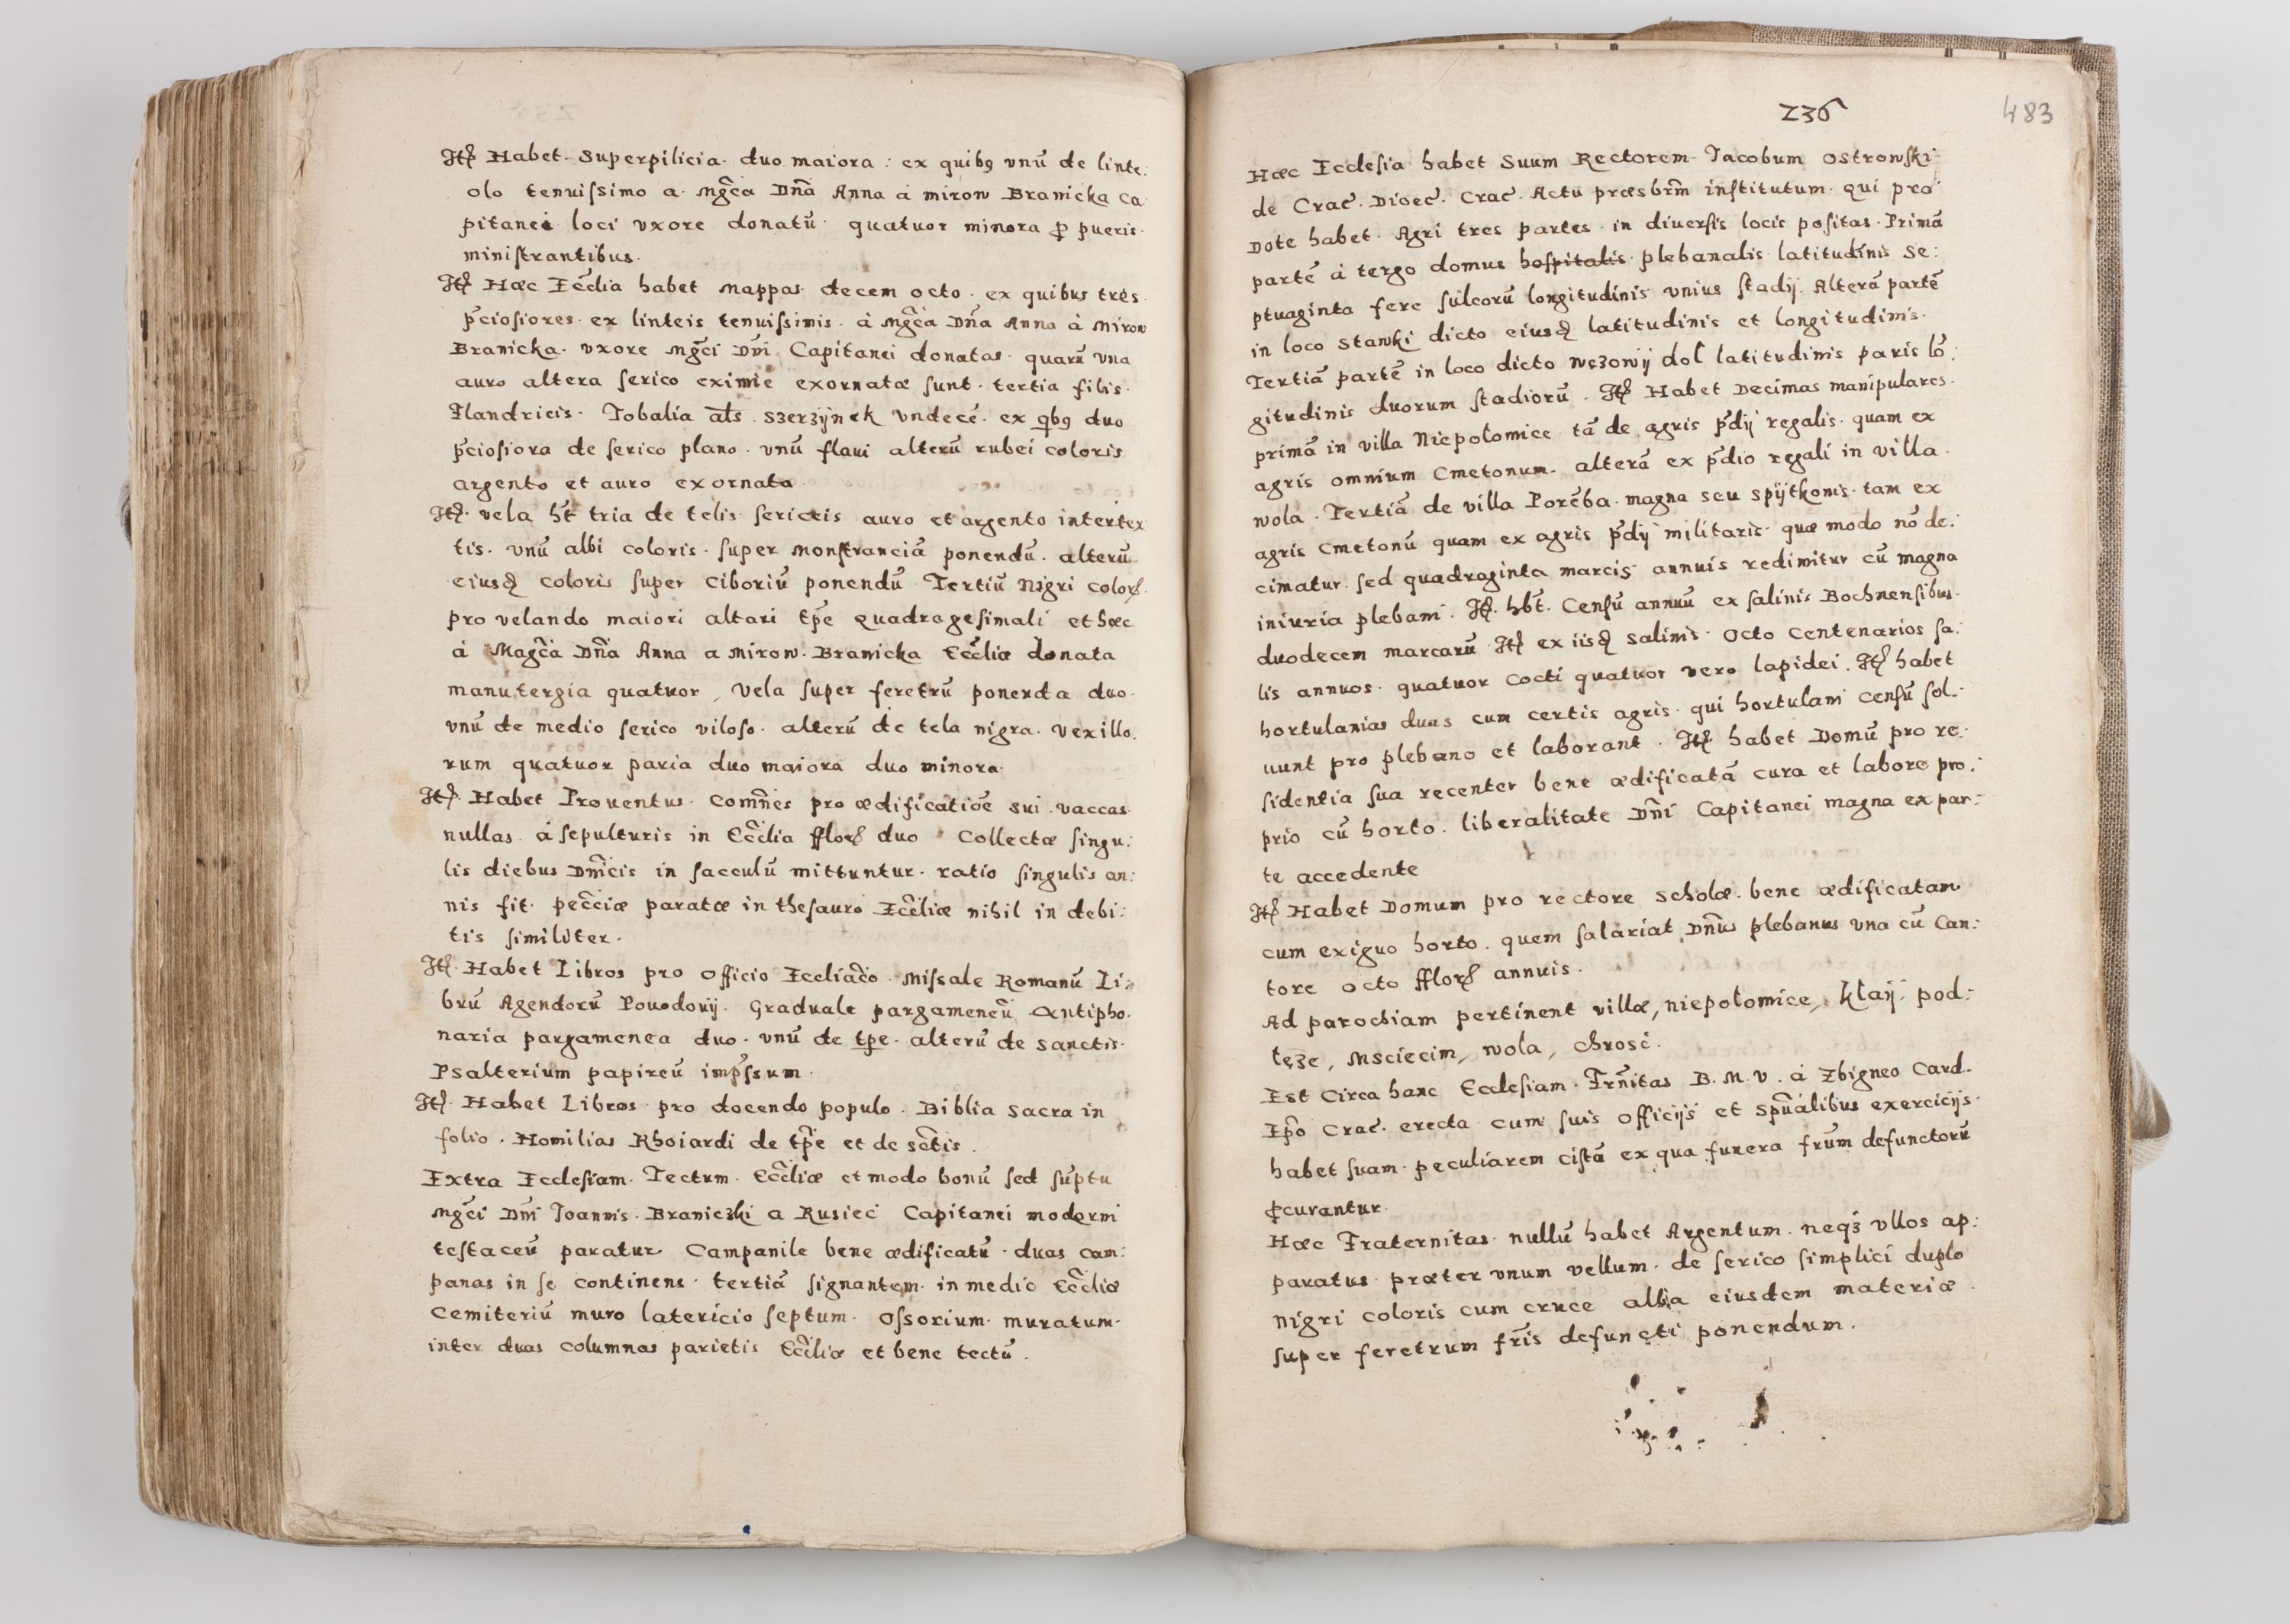 Itẽ Habet Superpilicia duo maiora: ex quibꝯ vnũ de linte:
olo tenuissimo a Mg̃ca Dña Anna à miron Branicka Ca
pitanei loci vxore donatũ quatuor minora ꝓ pueris
ministrantibus.
Itẽ Hæc Ecc̃lia habet Mappas decem octo. ex quibus trés
p̃ciosiores ex linteis tenuissimis à Mg̃ca Dña Anna à Miron
Branicka vxore Mg̃ci Dñi Capitanei donatas quarũ vna
auro altera serico eximie exornatæ sunt. tertia filis
Flandricis. Tobalia al̃s szerzÿnek vndecẽ. ex qbꝯ duo
p̃ciosiora de serico plano. vnũ flaui alterũ rubei coloris
argento et auro exornata
Itẽ. vela h̃t tria de telis sericeis auro et argento intertex
tis. vnũ albi coloris. super Monstranciã ponendũ. alterũ
eiusꝗ coloris super ciborium̃ ponendũ Tertiũ Nigri colorꝭ
pro velando maiori altari tp̃e Quadragesimali et hæc
à Magc̃a Dña Anna a Miron Branicka Ecc̃liæ donata
manutergia quatuor, Vela super feretrũ ponenda duo.
vnũ de medio serico viloso. alterũ de tela nigra. Vexillo.
rum quatuor paria duo maiora duo minora.
Itẽ. Habet Prouentus com̃nes pro ædificatiõe sui. vaccas
nullas. à sepulturis in Ecc̃lia fflorꝭ duo Collectæ singu:
lis diebus Dñicis in sacculũ mittuntur. ratio singulis an:
nis fit. pecc̃iæ paratæ in thesauro Ecc̃liæ nihil in debi:
tis similiter.
Itẽ. Habet Libros pro officio Eccliãco. Missale Romanũ Li:
brũ Agendorũ Powodowij. Graduale pargameneũ Antipho.
naria pargamenea duo. vnũ de tp̃e. alterũ de sanctis.
Psalterium papireũ imp̃ssum.
Itẽ. Habet Libros pro docendo populo. Biblia sacra in
folio. Homilias Rhoiardi de tp̃e et de sc̃tis.
Extra Ecclesiam. Tectum. Ecc̃liæ et modo bonũ sed sũptu
Mg̃ci Dñi Joannis Braniczki a Rusieci Capitanei moderni
testaceũ paratur Campanile bene ædificatũ. duas cam:
panas in se continens. tertiã signantem in medio Ecc̃liæ
Cemiteriũ muro latericio septum. Ossorium muratum
inter duas columnas parietis Ecc̃liæ et bene tectũ.
236
483
Hæc Ecclesia habet Suum Rectorem Jacobum Ostrowski
de Crac̃. Dioec̃. Crac̃. Actu præsbr̃m institutum. qui pro
Dote habet. Agri tres partes in diuersis locis positas. Primã
partẽ à tergo domus hospitalis plebanalis latitudinis se:
ptuaginta fere sulcorũ longitudinis vnius stadij. Alterã partẽ
in loco Stawki dicto eiusꝗ latitudinis et longitudinis.
Tertiã partẽ in loco dicto Wezowÿ dol latitudinis paris lõ:
gitudinis duorum stadiorũ. Itẽ Habet Decimas manipulares.
primã in villa Niepolomice tã de agris p̃dij regalis. quam ex
agris omnium Cmetonum. alterã ex p̃dio regali in villa
Wola. Tertiã de villa Porẽba magna seu Spÿtkonis tam ex
agris Cmetonũ quam ex agris p̃dij militaris quæ modo nõ de:
cimatur. sed quadraginta marcis annuis redimitur cũ magna
iniuria plebani. Itẽ. hb̃t. Censũ annuũ ex salinis Bochnensibus.
duodecem marcarũ Itẽ ex iisꝗ salinis Octo Centenarios sa:
lis annuos. quatuor cocti quatuor vero lapidei. Itẽ habet
hortulanias duas cum certis agris. qui hortulani Censũ sol:
uunt pro plebano et laborant. Itẽ habet Domũ pro re:
sidentia sua recenter bene ædificatã cura et labore pro:
prio cũ horto. liberalitate Dñi Capitanei magna ex par:
te accedente
Itẽ Habet Domum pro rectore scholæ. bene ædificatam
cum exiguo horto. quem salariat Dñus plebanus vna cũ Can:
tore octo fflorꝭ annuis.
Ad parochiam pertinent villæ, niepolomice, Klaÿ. pod:
lęze, Msciecim, Wola, chrosc̃.
Est Circa hanc Ecclesiam. Fr̃nitas B. M. V. à Zbigneo Card.
Ep̃o Crac̃. erecta cum suis officijs et spũalibus exercicijs.
habet suam peculiarem cistã ex qua funera fr̃um defunctorũ
ꝓcurantur.
Hæc Fraternitas nullũ habet Argentum. neqꝫ vllos ap:
paratus præter vnum vellum. de serico simplici duplo
nigri coloris cum cruce alba eiusdem materiæ.
super feretrum fr̃is defuncti ponendum.